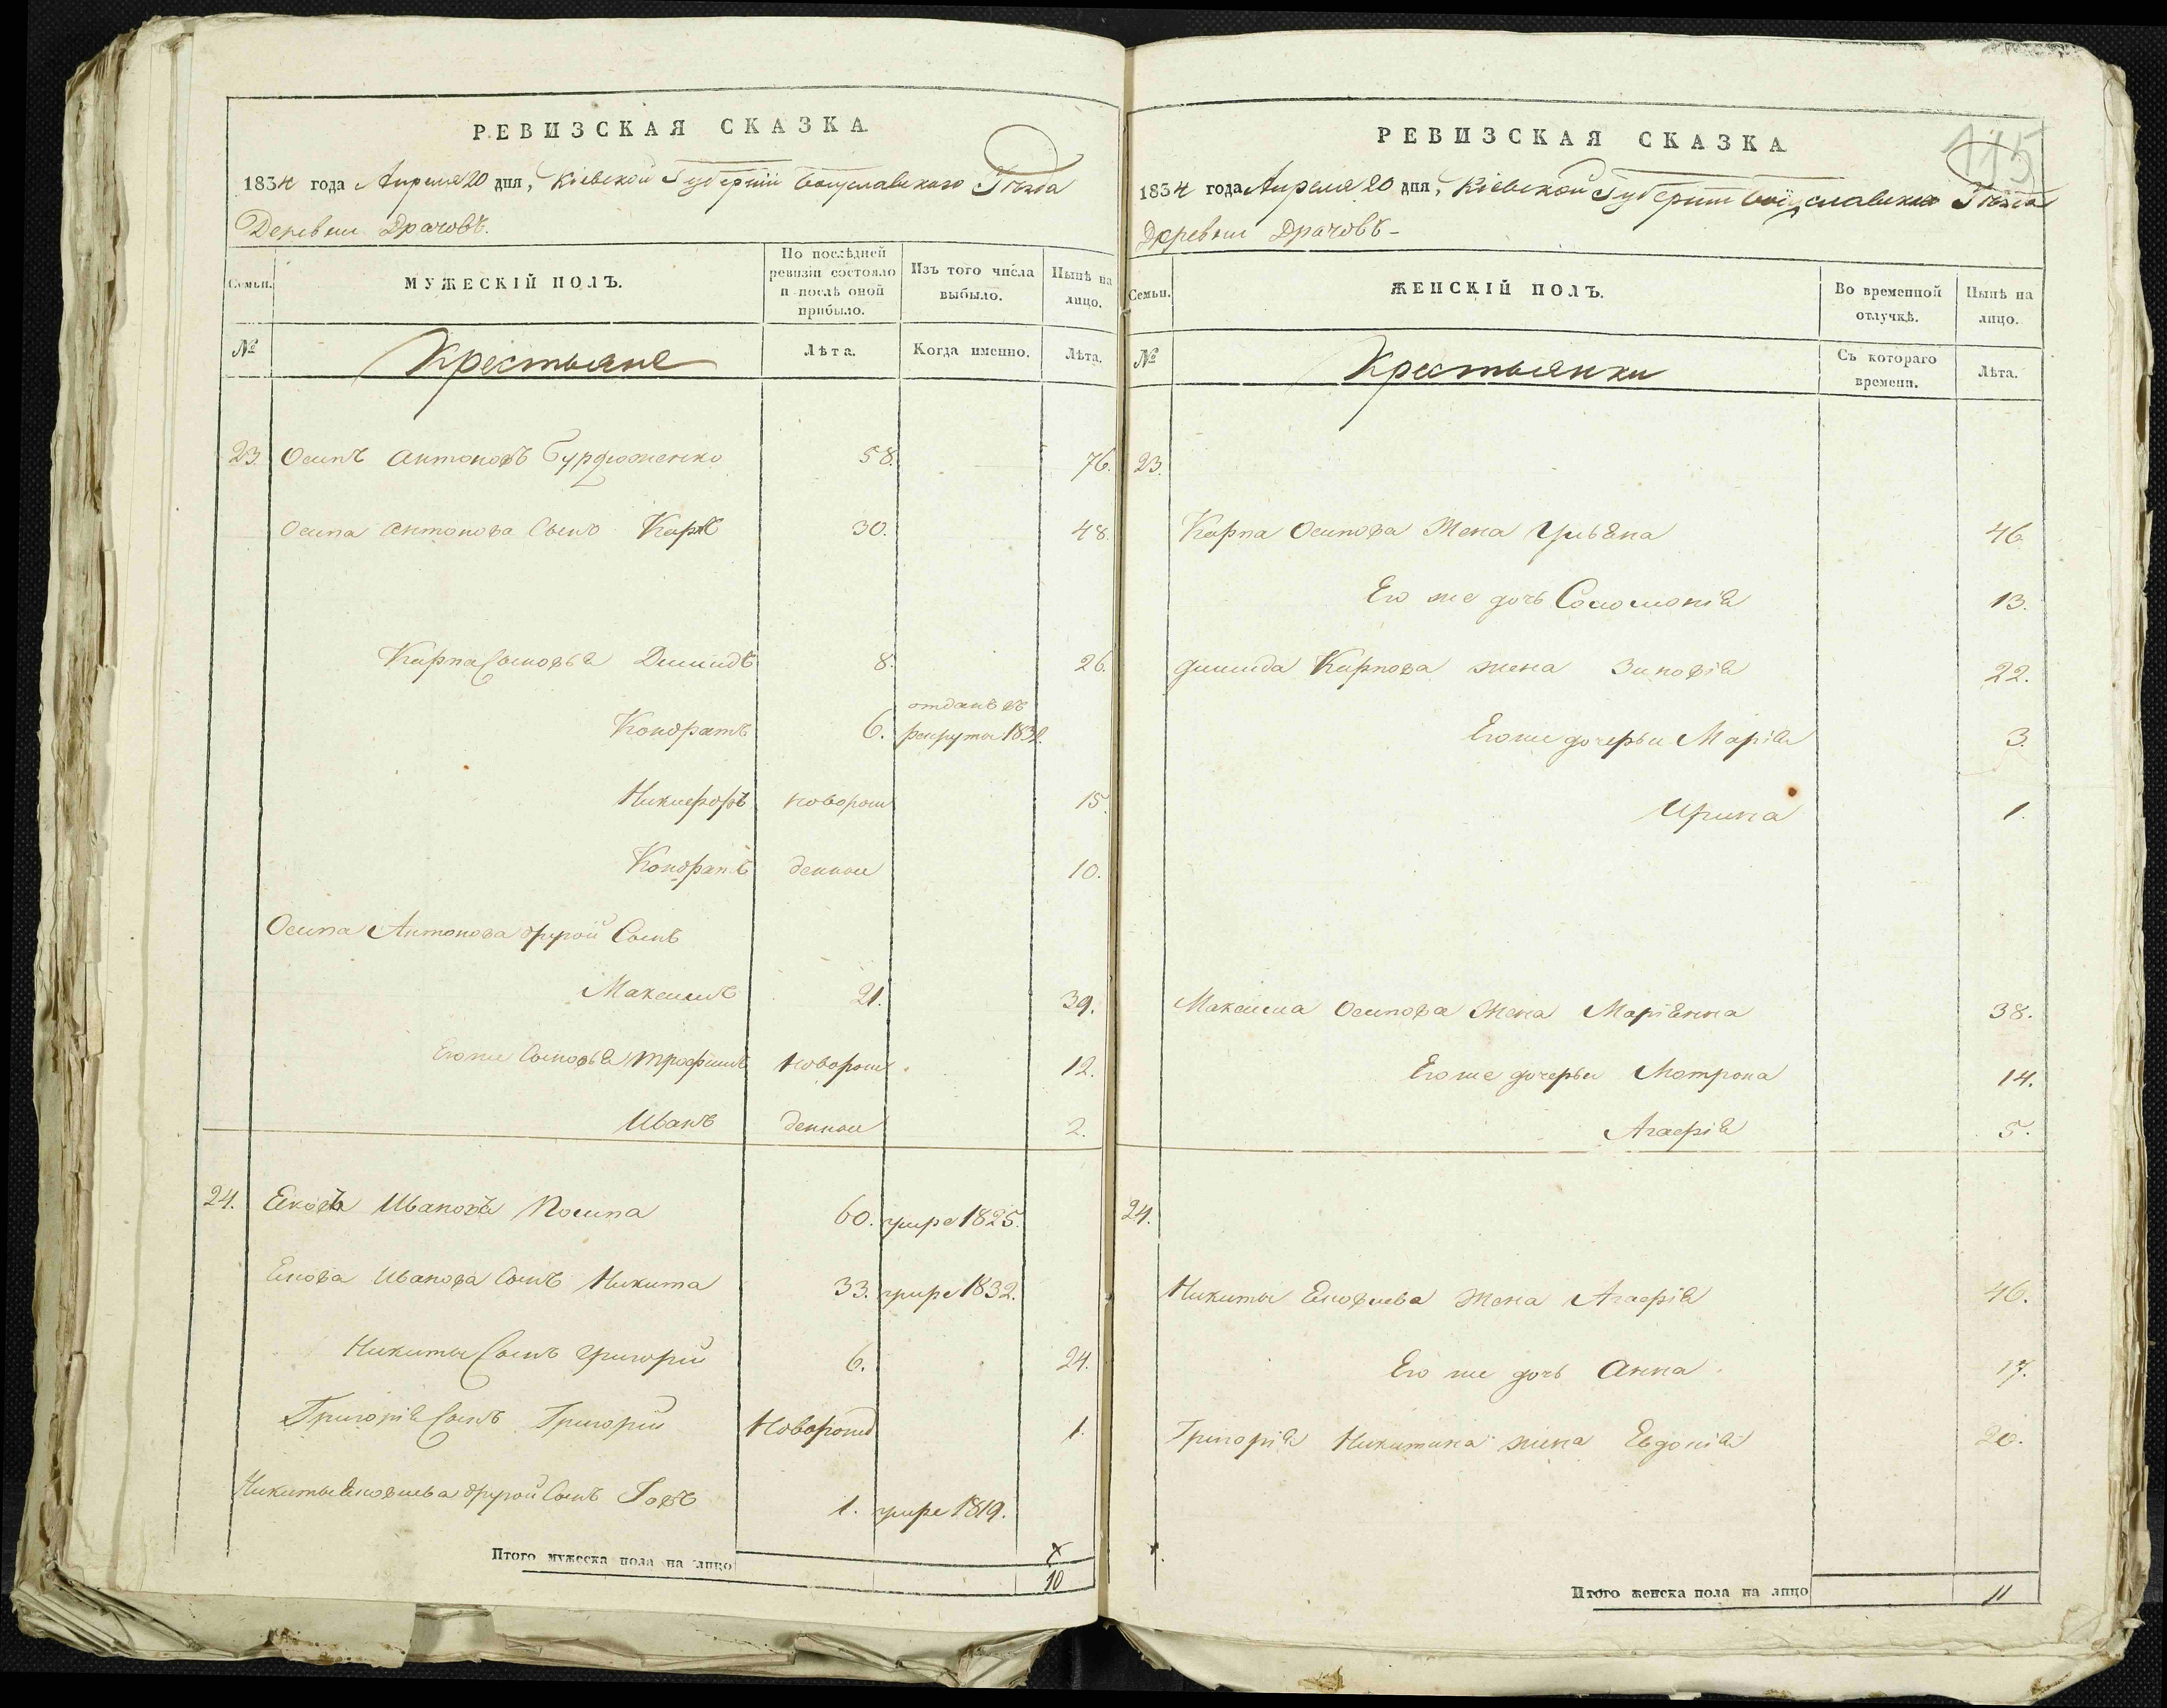 РЕВИЗСКАЯ СКАЗКА
1834 года Апреля 20 дня, Кіевской Губерніи Богуславского Уѣзда
Деревни Драчовъ.
Семьи. МУЖЕСКІЙ ПОЛЪ. По послѣдней ревизіи состояло и послѣ оной прибыло. Изъ того числа выбыло. Нынѣ на лицо.
№ Крестьяне Лѣта. Когда именно. Лѣта.
23. Осипъ Антоновъ Бурдюженко 58. 76.
Осипа Антонова Сынъ Карпъ 30. 48.
Карпа Сыновья Димидъ 8. 26.
Кондратъ 6. отданъ въ рекруты 1832.
Никифоръ новорож 15.
Кондратъ денные 10.
Осипа Антонова другой Сынъ
Максимъ 21. 39.
Его же Сыновья Трофимъ Новорож 12.
Иванъ денные 2.
24. Яковъ Ивановъ 60. умре 1825.
Якова Иванова Сынъ Никита 33. умре 1832.
Никиты Сынъ Григорій 6. 24.
Григорія Сынъ Григорій Новорожд 1.
Никиты Яковлева другой Сынъ 1. умре 1819.
Итого мужеска пола на лицо 10
115
РЕВИЗСКАЯ СКАЗКА
1834 года Апреля 20 дня, Кіевской Губерніи Богуславского Уѣзда
Деревни Драчовъ-
Семьи. ЖЕНСКІЙ ПОЛЪ. Во временной отлучкѣ. Нынѣ на лицо.
№ Крестьянки Съ котораго времени. Лѣта.
23.
Карпа Осипова Жена Ульяна 46
Его же дочь Соломонія 13.
Димида Карпова жена Зиновія 22.
Его же дочери Марія 3.
Ирина 1.
Максима Осипова Жена Маріянна 38.
Его же дочери Мотрона 14.
Агафія 5.
24.
Никиты Яковлева Жена Агафія 46.
Его же дочь Анна 17.
Григорія Никитина жена Евдокія 20.
Итого женска пола на лицо 11